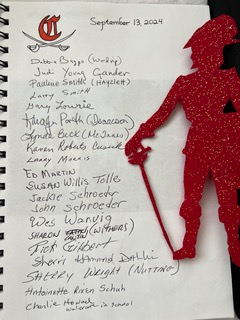 C
September 13, 2024
Debbie Boggs (Wardrip)
Judi Young Gander
Pauline Smith (Hayslett)
Larry Smith
Gary Lowrie
Parth (Donovan)
Lynda Beck (McInnis)
Karen Roberts
Larry Morris
ED MARTIN
SUSAN Willis Tolle
Jackie Schroeder
John Schroeder
Wes Wanvig
SHARON (WITHERS)
Rick Gilbert
Sherri HAMMOND Dahle
SHERRY WRIGHT (NUTTING)
Antoinette Rixen Schuh
Charlie in school